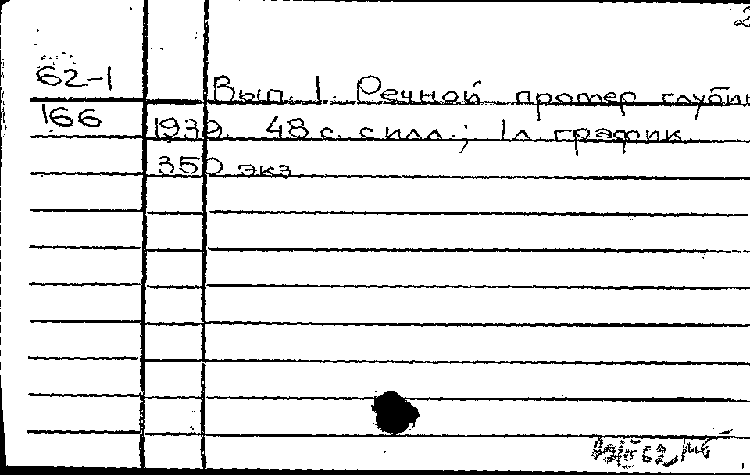 2
62-1 Вып. 1. Речной промер глубин
166 1939. 48 с. с илл.; 1 л. график.
350 экз.